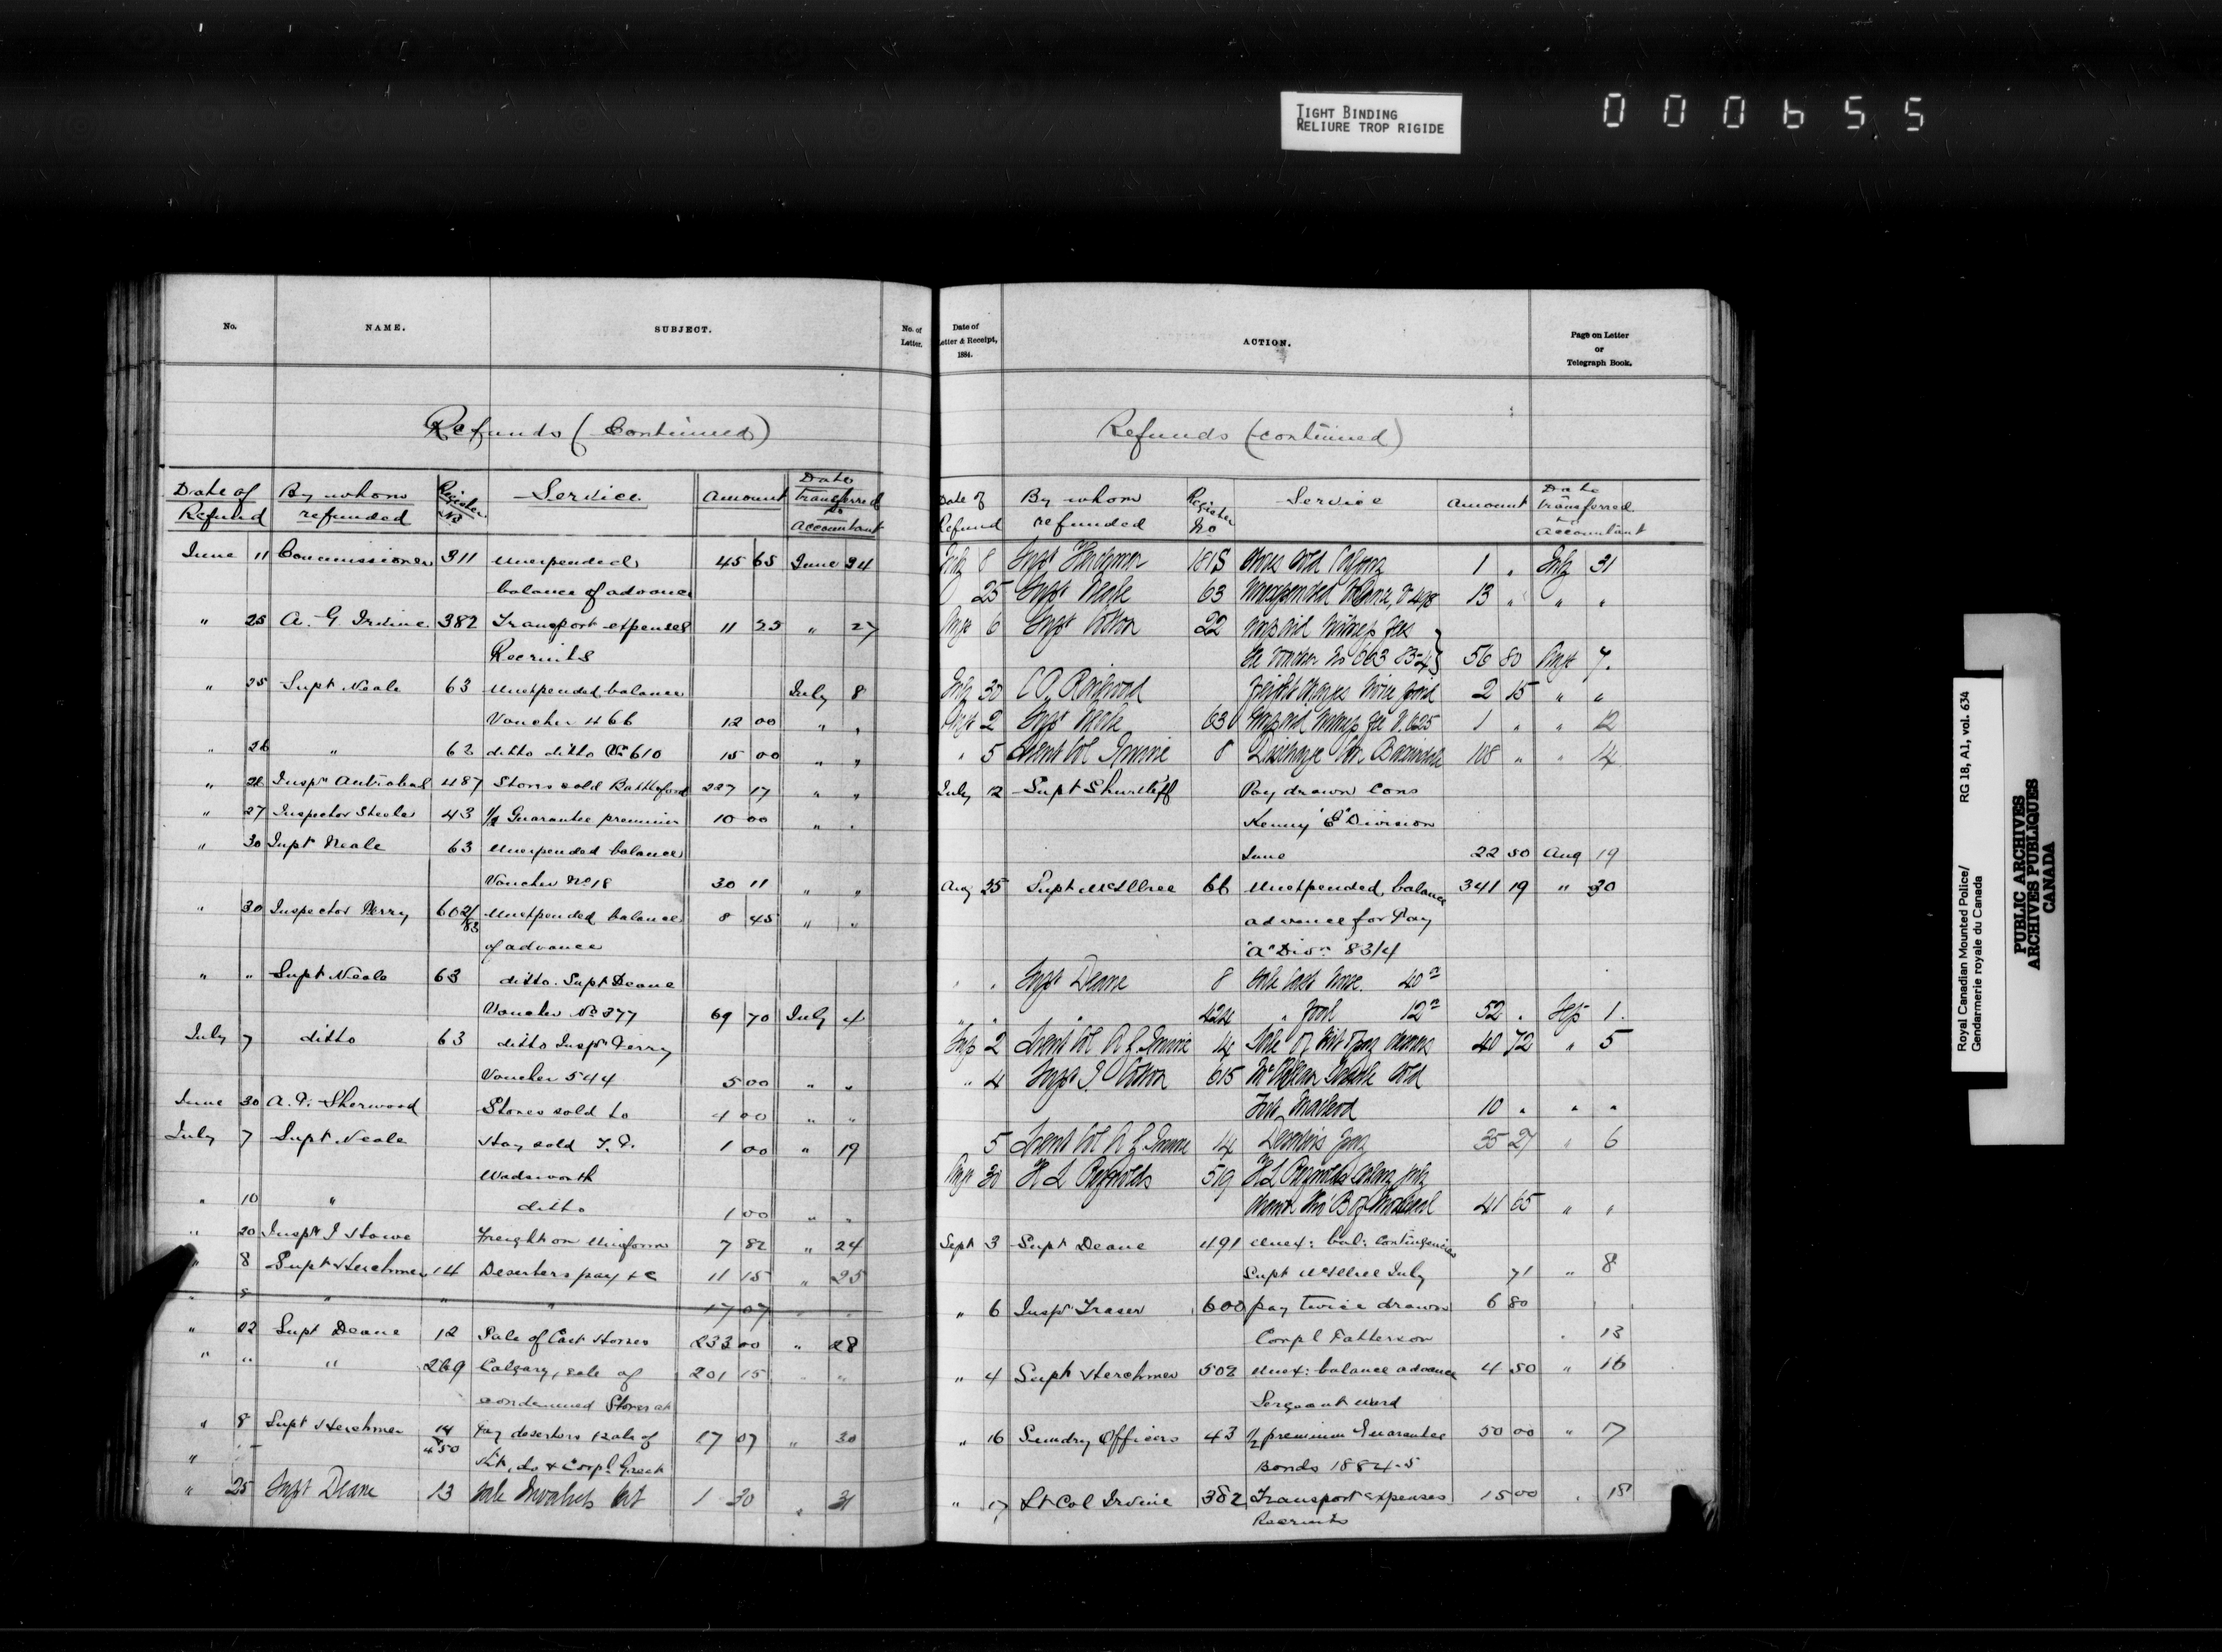 TIGHT BINDING
RELIURE TROP RIGIDE
000655
No. NAME. SUBJECT. No. of Letter.
Refunds (Continued)
Date of Refund By whom refunded Register No Service Amount Date transferred to Accountant
June 11 Commissioner 311 Unexpended 45 65 June 24
balance of advance
" 25 A. G. Irvine 382 Transport expenses 11 55 " 27
Recruits
" 25 Supt Neale 63 Unexpended balance July 8
Voucher 466 12 00 " "
" 26 " 62 ditto ditto No 610 15 00 " "
" 26 Inspr Antrobus 487 Stores sold Battleford 227 17 " "
" 27 Inspector Steele 43 1/2 Guarantee premium 10 00 " "
" 30 Supt Neale 63 Unexpended balance
Voucher No 18 30 11 " "
" 30 Inspector Perry 602/83 Unexpended balance 8 45 " "
of advance
" " Supt Neale 63 ditto. Supt Deane
Voucher No 377 69 70 July 4
July 7 ditto 63 ditto Inspr Perry
Voucher 544 5 00 " "
June 30 A. P. Sherwood Stores sold to 4 00 " "
July 7 Supt Neale Hay sold T. P. 1 00 " 19
Wadsworth
" 10 " ditto 1 00 " "
" 20 Inspr J Howe Freight on Uniform 7 82 " 24
" 8 Supt Herchmer 14 Deserters pay &c 11 15 " 25
" 8 " " " 17 07 " "
" 22 Supt Deane 12 Sale of Cast Horses 233 00 " 28
" " " 269 Calgary, sale of 201 15 " "
condemned Stores at
" 8 Supt Herchmer 14 Pay deserters & sale of 17 07 " 30
" 450 Kit, do & Corpl
" 25 Supt Deane 13 Sale Invalids Kit 1 30 " 31
Date of Letter & Receipt, 1884. ACTION. Page on Letter or Telegraph Book.
Refunds (continued)
Date of Refund By whom refunded Register No Service Amount Date transferred to Accountant
July 8 Supt Herchmer Stores sold Calgary 1 " July 31
25 Supt Neale 63 Unexpended balance, V 498 13 " " "
Augt 6 Supt Cotton 22 Unpaid Witness fees
See Voucher No 663 83-4 56 80 Augt 7.
July 30 2 15 " "
Augt 2 Supt Neale 63 Unpaid Witness fee V. 625 1 " " 12
" 5 Lieut Col Irvine 8 Discharge 108 " " 14
July 12 Supt Shurtliff Pay drawn Cons
Kenny "E" Division
June 22 50 Aug 19
Aug 25 Supt McIllree 66 Unexpended balance 341 19 " 30
advance for Pay
"A" Divn 83/4
" " Supt Deane 8 Sale Cast horse 40
" " " 424 " 12 52 " Sep 1.
Sep 2 Lieut Col A G Irvine 14 Sale of Kit & pay deserters 40 72 " 5
" 4 Supt J Cotton 615
Fort Macleod 10 " " "
5 Lieut Col A G Irvine 14 Deserters pay 35 27 " 6
Augt 30 H L Reynolds 519 H L Reynolds salary July
drawn thro' B of Montreal 41 65 " "
Sept 3 Supt Deane 491 Unex: bal: Contingencies
Supt McIllree July 71 " 8
" 6 Inspr Fraser 600 pay twice drawn 6 80
Corpl Patterson " 13
" 4 Supt Herchmer 502 Unex: balance advance 4 50 " 16
Sergeant Ward
" 16 Sundry Officers 43 1/2 premium Guarantee 50 00 " 17
Bonds 1884-5
" 17 Lt Col Irvine 382 Transport expenses 15 00 " 18
Recruits
Royal Canadian Mounted Police/ RG 18, A1, vol. 634
Gendarmerie royale du Canada
PUBLIC ARCHIVES
ARCHIVES PUBLIQUES
CANADA